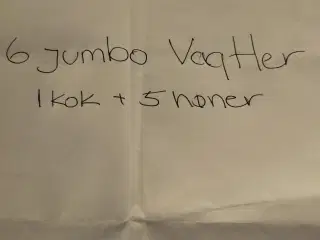 6 Jumbo Vagtler
1 kok + 5 høner